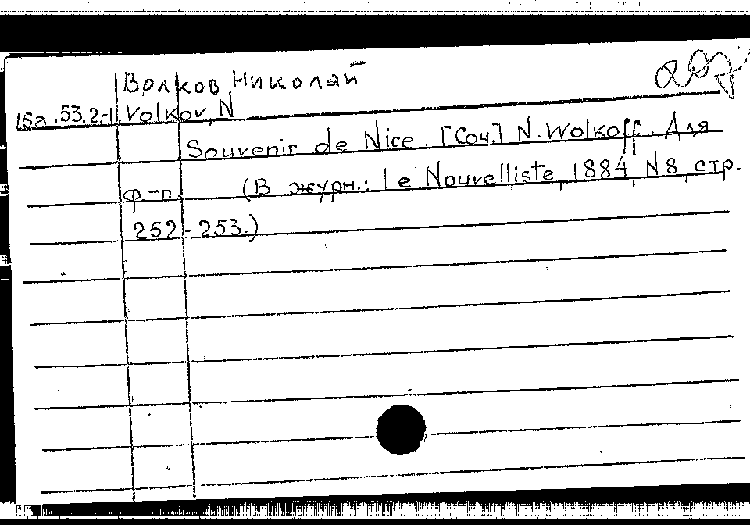 Волков Николай
15a.53.2-1 Volkov, N
Souvenir de Nice. [Соч.] N. Wolkoff. Для
ф.-п. (В журн.: Le Nouvelliste, 1884, N8, стр.
252-253.)